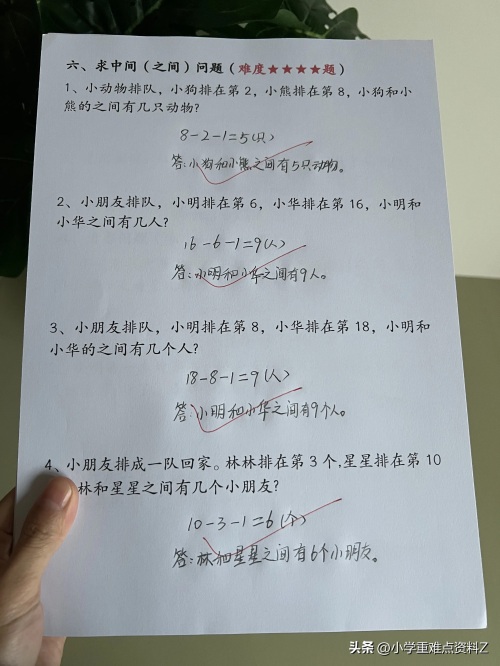 六、求中间（之间）问题（难度★★★★题）
1、小动物排队，小狗排在第2，小熊排在第8，小狗和小
熊的之间有几只动物？
8-2-1=5(只)
答:小狗和小熊之间有5只动物。
2、小朋友排队，小明排在第6，小华排在第16，小明和
小华之间有几人？
16-6-1=9(人)
答:小明和小华之间有9人。
3、小朋友排队，小明排在第8，小华排在第18，小明和
小华的之间有几个人？
18-8-1=9(人)
答:小明和小华之间有9个人。
4、小朋友排成一队回家。林林排在第3个,星星排在第10
林和星星之间有几个小朋友？
10-3-1=6(个)
答:林和星星之间有6个小朋友。
头条 @小学重难点资料Z